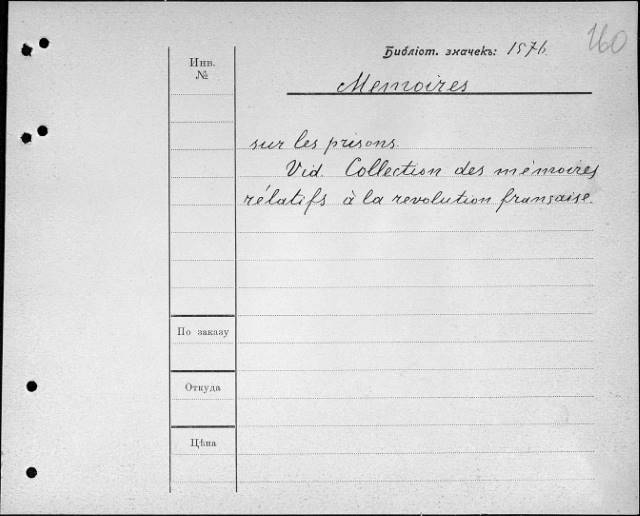 160
Библіот. значекъ: 1576
Инв.
№
Memoires
sur les prisons.
Vid. Collection des mémoires
rélatifs à la revolution française.
По заказу
Откуда
Цѣна